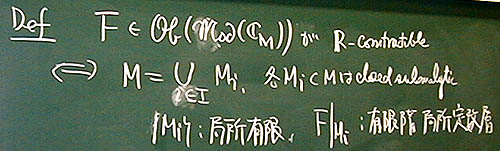 Def F ∈ Ob(Mod(ℂ_M)) が R-constructible
⟺ M = ⋃_{i∈I} M_i, 各 M_i ⊂ M は closed subanalytic
{M_i} : 局所有限, F|_{M_i} : 有限階 局所定数層